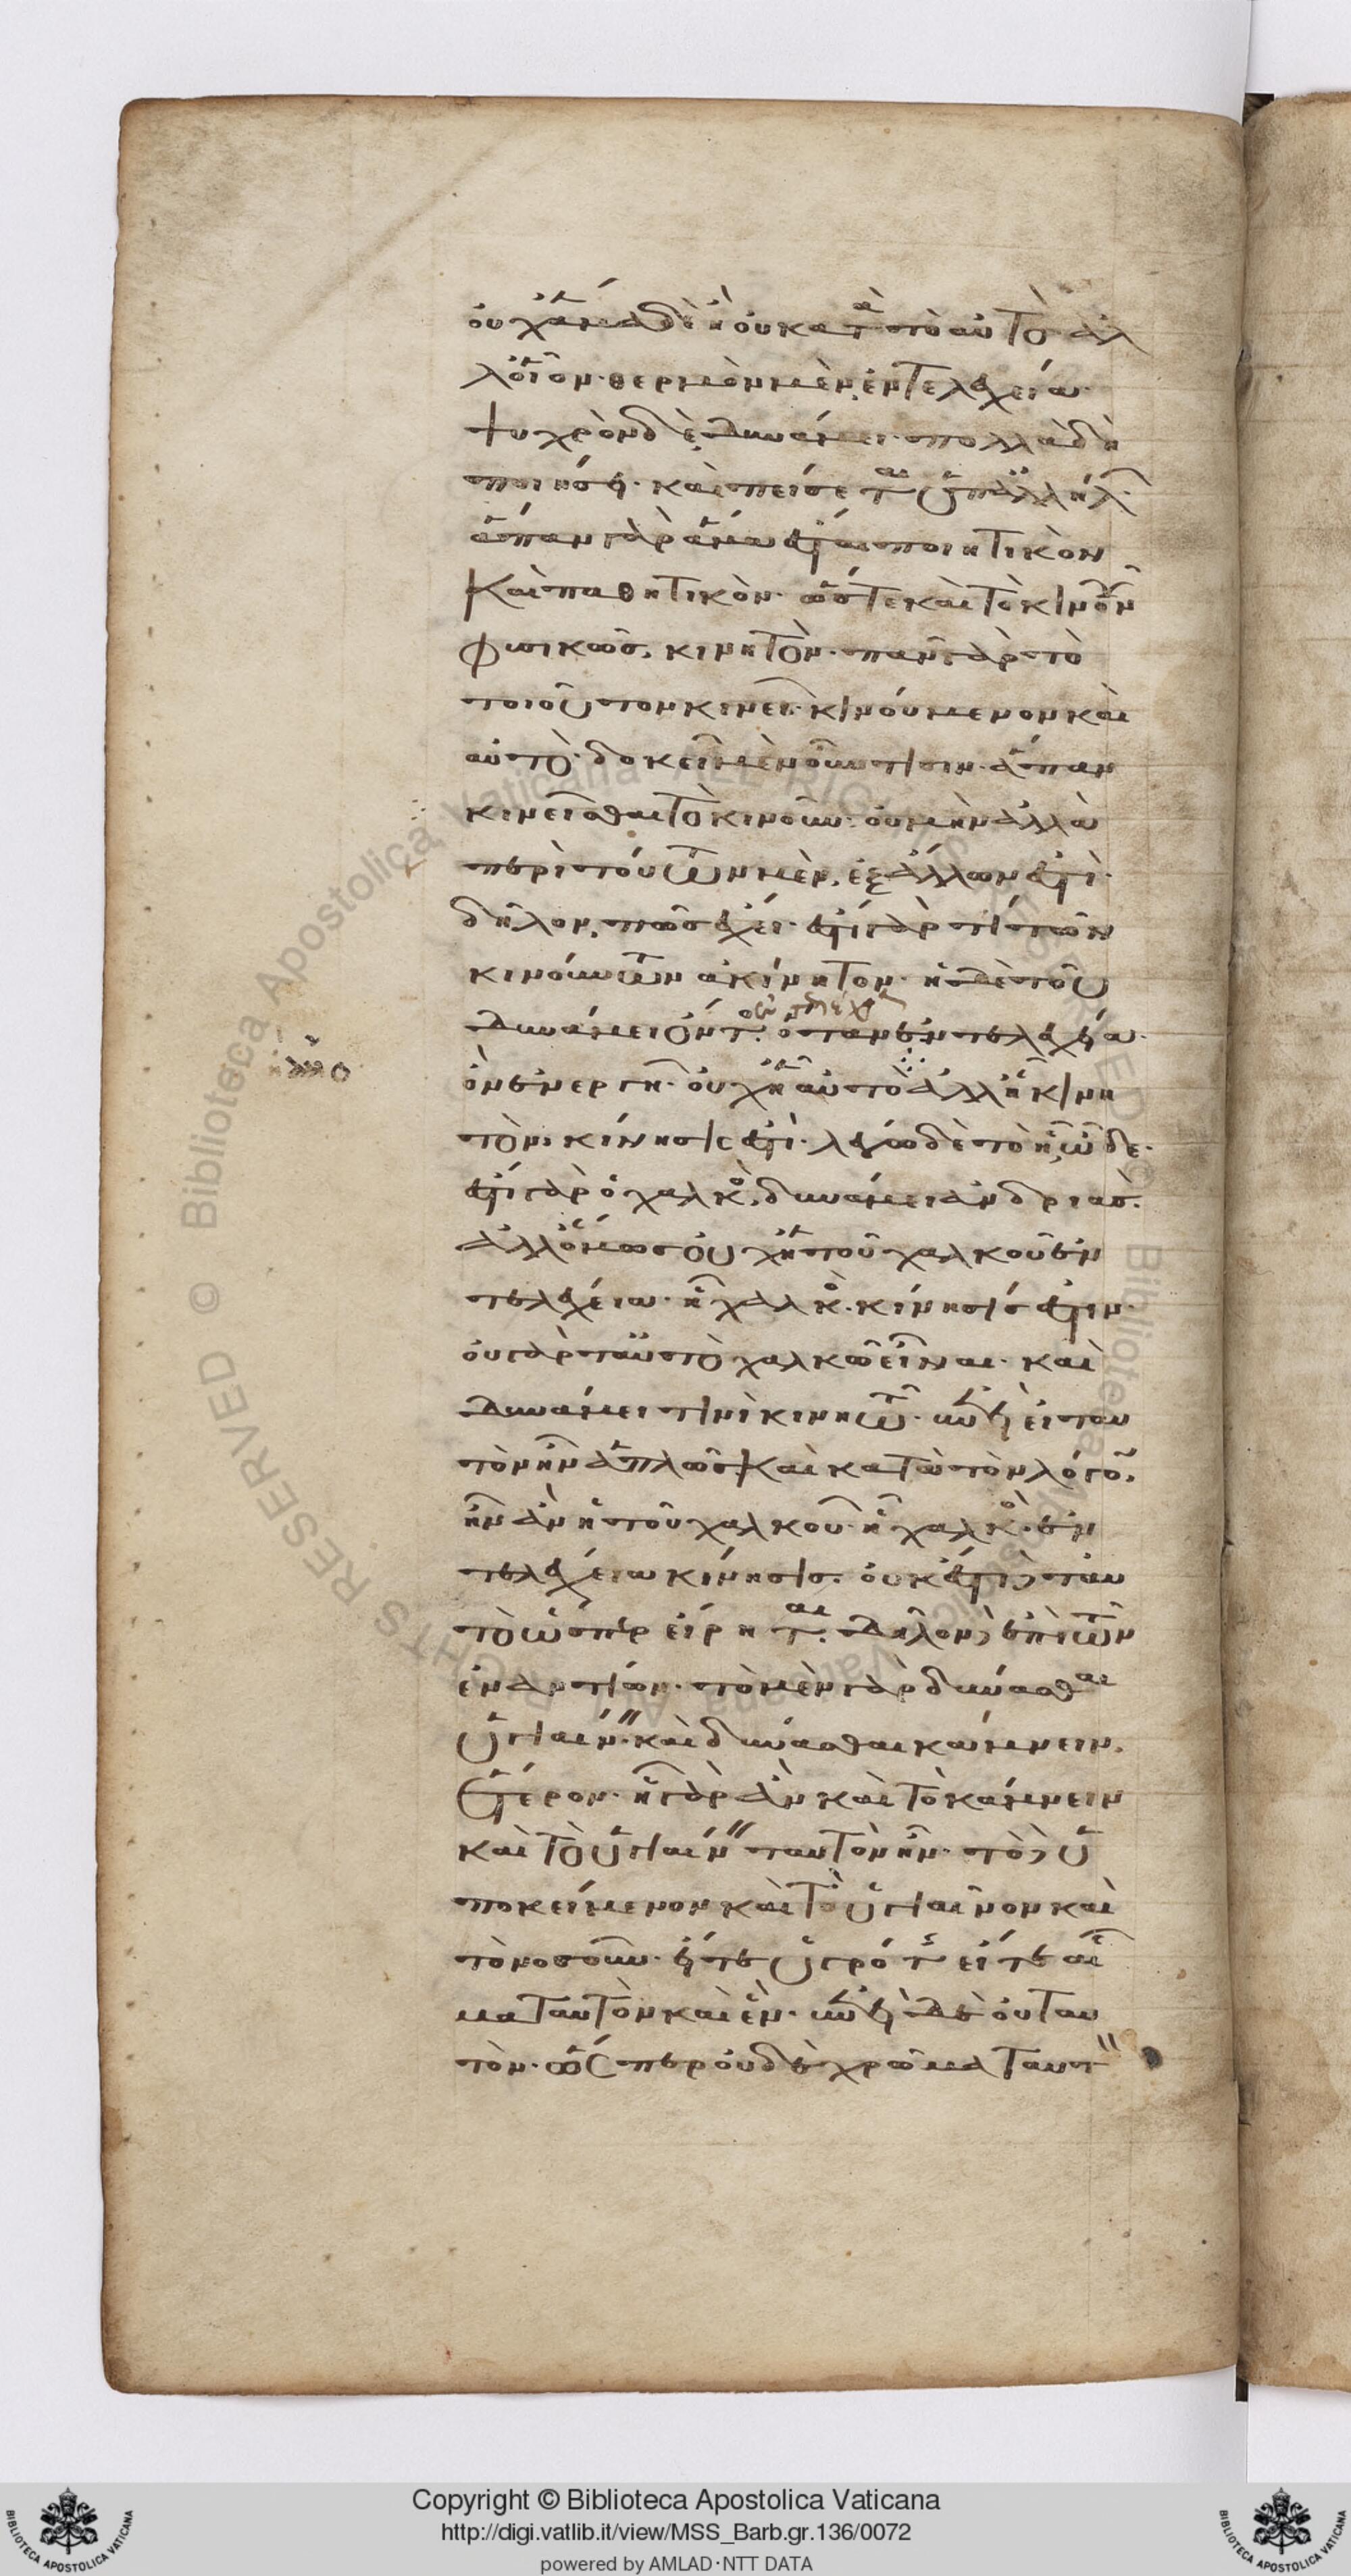 οὐχ ἅμα δὲ ἢ οὐ κατὰ τὸ αὐτὸ· ἀλ
λ' οἷον· θερμὸν μὲν ἐντελεχεία·
ψυχρὸν δὲ δυνάμει· πολλὰ δὴ
ποιήσει· καὶ πείσεται ὑπ' ἀλλήλ
ἅπαν γὰρ ἅμα ἔσται ποιητικὸν
καὶ παθητικὸν· ὥστε καὶ τὸ κινοῦν
φυσικῶς, κινητὸν· πᾶν γὰρ τὸ
τοιοῦτον κινεῖ· κινούμενον καὶ
αὐτὸ· δοκεῖ μὲν οὖν τισιν· ἅπαν
κινεῖσθαι τὸ κινοῦν· οὐ μὴν ἀλλὰ
περὶ τούτων μὲν, ἐξ ἄλλων ἔσται·
δῆλον, πῶς ἔχει· ἔστι γάρ τι τῶν
κινούντων ἀκίνητον· ἡ δὲ τοῦ
δυνάμει ὄντ· ὅταν ἐντελεχεία·
ὂν ἐνεργῆ· οὐχ ἧ αὐτὸ ἀλλ' ἧ κινη
τὸν, κίνησίς ἐστι· λέγω δὲ τὸ ἧ, ὧδε·
ἔστι γὰρ ὁ χαλκὸς, δυνάμει ἀνδριὰς·
ἀλλ' ὅμως οὐχ ἡ τοῦ χαλκοῦ ἐν
τελεχεία· ἧ χαλκὸς· κίνησίς ἐστιν·
οὐ γὰρ ταὐτὸ χαλκῶ εἶναι· καὶ
δυνάμει τινὶ κινητῶ· ἐπεὶ εἰ ταυ
τὸν ἦν ἁπλῶς καὶ κατὰ τὸν λόγον,
ἦν ἂν ἡ τοῦ χαλκοῦ· ἧ χαλκὸς· ἐν
τελεχεία κίνησις· οὐκ ἔστι δὲ ταυ
τὸ ὡς εἴρηται· δῆλον δὲ ἐπὶ τῶν
ἐναντίων· τὸ μὲν γὰρ δύνασθαι
ὑγιαίνειν· καὶ δύνασθαι κάμνειν,
ἕτερον· ἦ γὰρ ἂν καὶ τὸ κάμνειν
καὶ τὸ ὑγιαίνειν ταυτὸν ἦν· τὸ δὲ ὑ
ποκείμενον καὶ τὸ ὑγιαῖνον καὶ
τὸ νοσοῦν· εἴτε ὑγρότης εἴτε αἷ
μα ταυτὸν καὶ ἕν· ἐπεὶ δὲ οὐ ταυ
τὸν· ὥσπερ οὐδὲ χρῶμα ταυτ
Copyright © Biblioteca Apostolica Vaticana
http://digi.vatlib.it/view/MSS_Barb.gr.136/0072
powered by AMLAD·NTT DATA